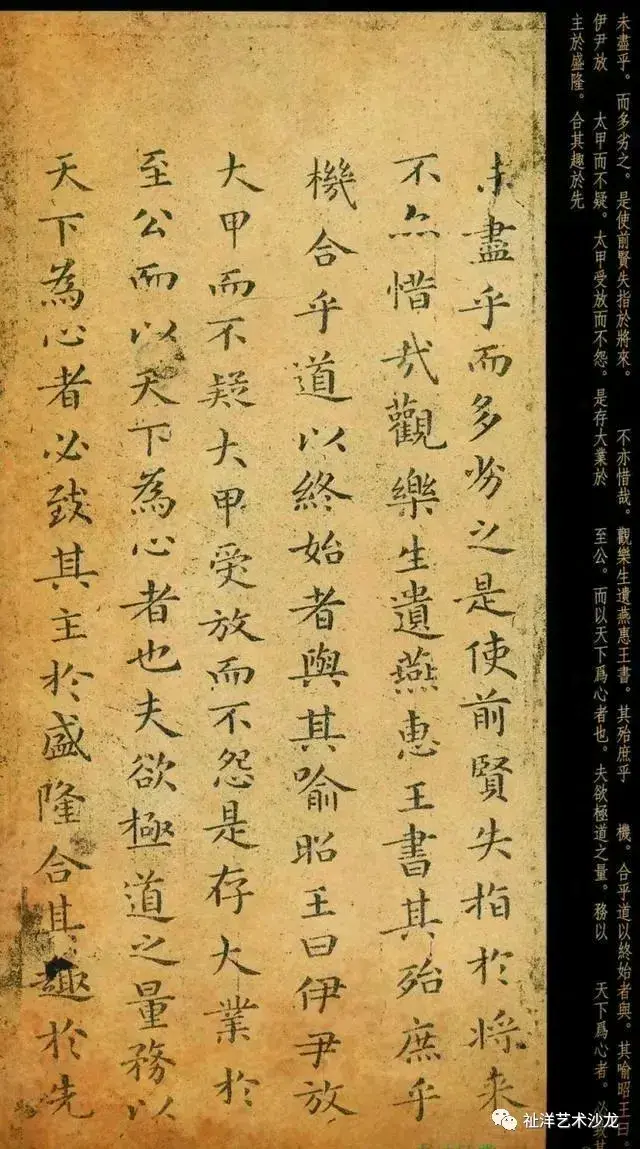 未盡乎。而多劣之。是使前賢失指於將來。 不亦惜哉。觀樂生遺燕惠王書。其殆庶乎 機。合乎道以終始者與。其喻昭王曰。
伊尹放 太甲而不疑。太甲受放而不怨。是存大業於 至公。而以天下爲心者也。夫欲極道之量。務以 天下爲心者。必致其
主於盛隆。合其趣於先
未盡乎而多劣之是使前賢失指於將来
不亦惜哉觀樂生遺燕惠王書其殆庶乎
機合乎道以終始者與其喻昭王曰伊尹放
大甲而不疑大甲受放而不怨是存大業於
至公而以天下為心者也夫欲極道之量務以
天下為心者必致其主於盛隆合其趣於先
祉洋艺术沙龙